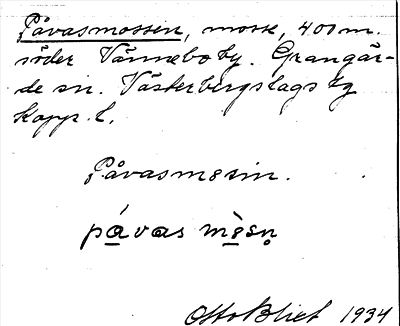 Påvasmossen, mosse, 400 m.
söder Vännebo by. Grangär-
de sn. Västerbergslags tg
Kopp. l.
Påvasmosin.
påvas mòsn̥
Otto Blixt 1934